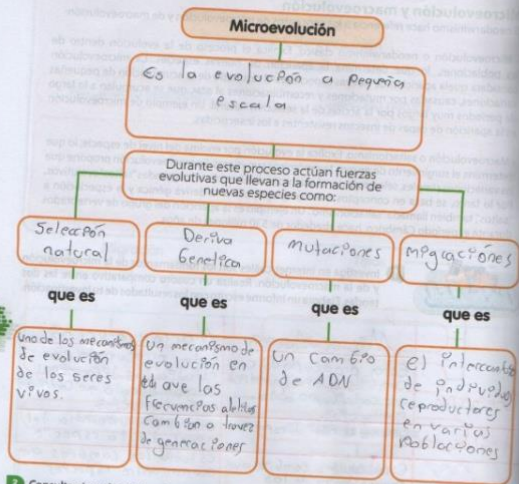 Microevolución
Es la evolución a pequeña
escala
Durante este proceso actúan fuerzas
evolutivas que llevan a la formación de
nuevas especies como:
Selección
natural
Deriva
Genetica
mutaciones
migraciones
que es
que es
que es
que es
uno de los mecanismos
de evolución
de los seres
vivos.
un mecanismo de
evolución en
que las
frecuencias alelicas
cambion a travez
de generaciones
un cambio
de ADN
el intercambio
de individuos
reproductores
en varias
poblaciones
2